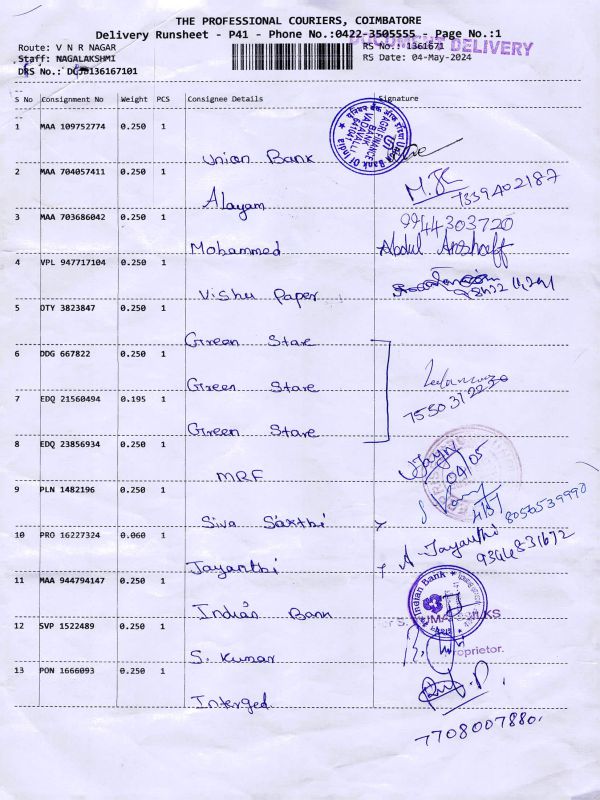 THE PROFESSIONAL COURIERS, COIMBATORE
Delivery Runsheet - P41 - Phone No.:0422-3505555 - Page No.:1
DOCUMENT DELIVERY
Route: V N R NAGAR RS No.: 1361671
Staff: NAGALAKSHMI RS Date: 04-May-2024
S No Consignment No Weight PCS Consignee Details Signature
1 MAA 109752774 0.250 1 Union Bank
2 MAA 704057411 0.250 1 Alayam 7339402187
3 MAA 703686042 0.250 1 Mohammed 9944303720
Abdul
4 VPL 947717104 0.250 1 Vishu Paper
5 DTY 3823847 0.250 1 Green Stare
6 DDG 667822 0.250 1 Green Stare
7 EDQ 21560494 0.195 1 Green Stare
8 EDQ 23856934 0.250 1 MRF 04/05
9 PLN 1482196 0.250 1 Siva Sakthi 8056539990
10 PRO 16227324 0.060 1 Jayanthi A Jayanthi
9344831672
11 MAA 944794147 0.250 1 Indian Bank Indian Bank
12 SVP 1522489 0.250 1 S. Kumar Proprietor.
13 PON 1666093 0.250 1 Interged
7708007880.